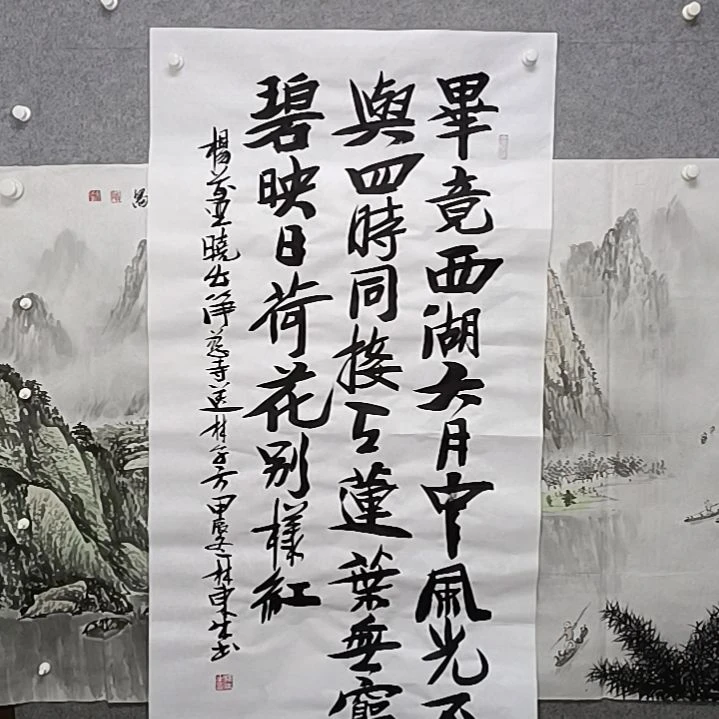 畢竟西湖六月中風光不
與四時同接天蓮葉無窮
碧映日荷花别樣紅
楊萬里曉出淨慈寺送林子方甲辰冬林東生书